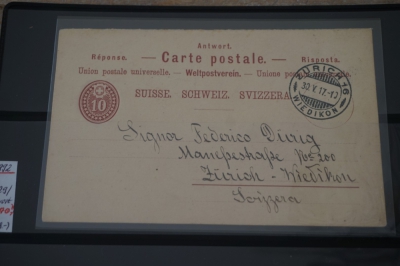 Antwort.
Réponse. — Carte postale. — Risposta.
Union postale universelle. — Weltpostverein. — Unione postale
SUISSE. SCHWEIZ. SVIZZERA
10
ZÜRICH 36
30.V.17.-
WIEDIKON
Signor Federico
Manessestraße No 200
Zürich - Wiedikon
Svizzera